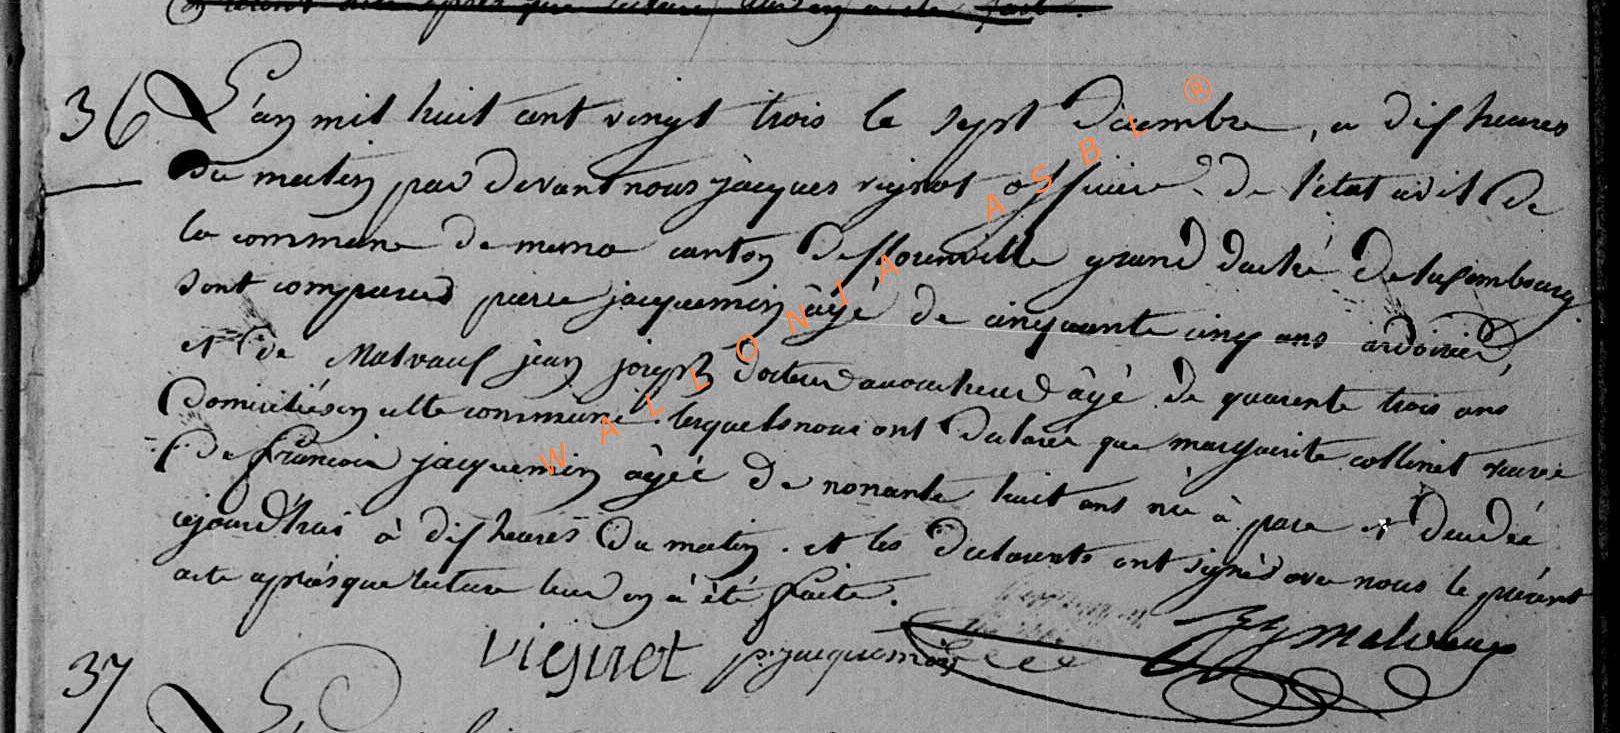 36 L'an mil huit cent vingt trois le sept decembre, a dix heures
du matin par devant nous jacques vignot officier de l'état civil de
la commune de muno canton de florenville grand duché de luxembourg
sont comparus pierre jacquemin âgé de cinquante cinq ans ardoisier,
et de Malvaux jean joseph docteur accoucheur âgé de quarente trois ans
domiciliés en cette commune. lesquels nous ont declarée que marguerite collinet veuve
de francois jacquemin âgée de nonante huit ans née à et decedée
cejourd'hui à dix heures du matin. et les declarants ont signés avec nous le présent
acte aprés que lecture leur en à été faite.
vignot p. jacquemin
37
WALLONIA ASBL ®